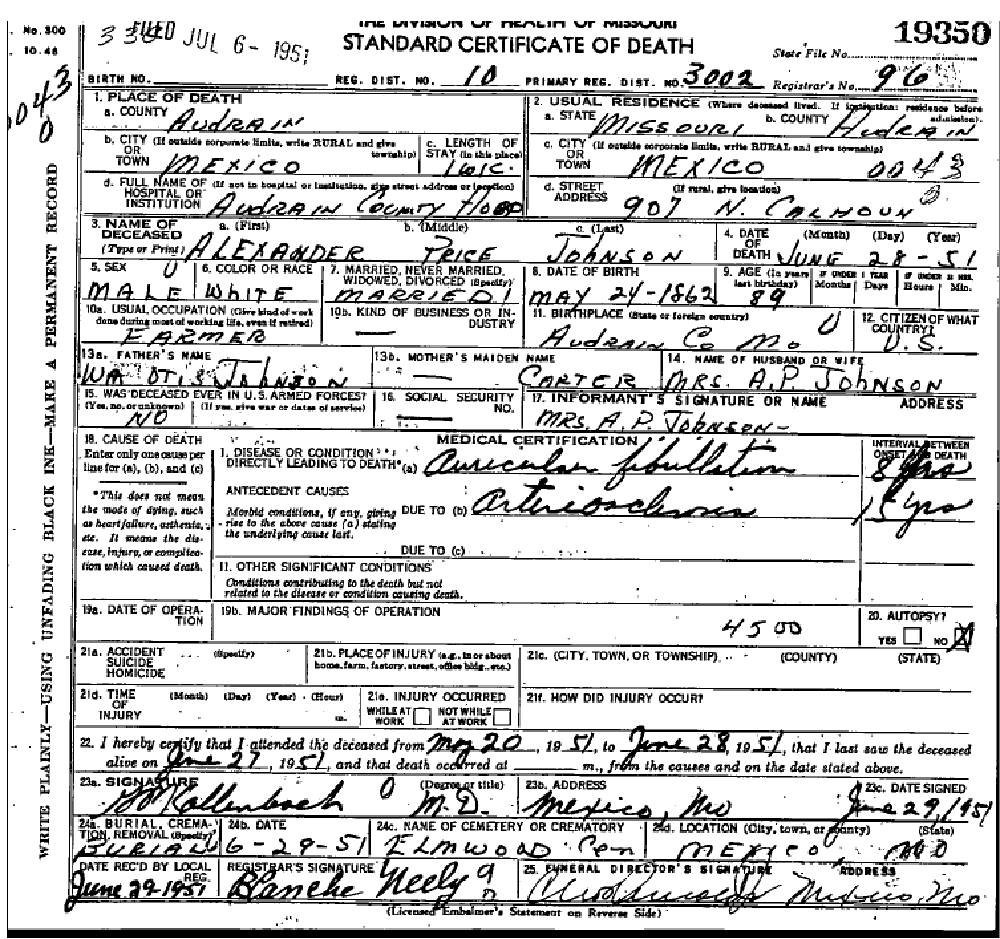 No. 300
10.48
FILED JUL 6 - 1951
THE DIVISION OF HEALTH OF MISSOURI
STANDARD CERTIFICATE OF DEATH
19350
State File No.
BIRTH NO. REG. DIST. NO. 10 PRIMARY REG. DIST. NO. 3002 Registrar's No. 96
0043
0
WRITE PLAINLY—USING UNFADING BLACK INK—MAKE A PERMANENT RECORD
1. PLACE OF DEATH
a. COUNTY AUDRAIN
2. USUAL RESIDENCE (Where deceased lived. If institution: residence before admission).
a. STATE MISSOURI b. COUNTY AUDRAIN
b. CITY (If outside corporate limits, write RURAL and give township)
OR TOWN MEXICO
c. LENGTH OF STAY (in this place)
c. CITY (If outside corporate limits, write RURAL and give township)
OR TOWN MEXICO 0043
d. FULL NAME OF (If not in hospital or institution, give street address or location)
HOSPITAL OR INSTITUTION AUDRAIN COUNTY HOSP
d. STREET ADDRESS (If rural, give location)
907 N. CALHOUN
3. NAME OF DECEASED (Type or Print)
a. (First) b. (Middle) c. (Last)
ALEXANDER PRICE JOHNSON
4. DATE OF DEATH (Month) (Day) (Year)
JUNE 28-51
5. SEX MALE
6. COLOR OR RACE WHITE
7. MARRIED, NEVER MARRIED, WIDOWED, DIVORCED (Specify)
MARRIED 1
8. DATE OF BIRTH MAY 24-1862
9. AGE (In years last birthday) 89
IF UNDER 1 YEAR Months Days
IF UNDER 24 HRS. Hours Min.
10a. USUAL OCCUPATION (Give kind of work done during most of working life, even if retired)
FARMER
10b. KIND OF BUSINESS OR INDUSTRY
11. BIRTHPLACE (State or foreign country)
AUDRAIN CO MO
12. CITIZEN OF WHAT COUNTRY?
U.S.
13a. FATHER'S NAME
WM OTIS JOHNSON
13b. MOTHER'S MAIDEN NAME
CARTER
14. NAME OF HUSBAND OR WIFE
MRS. A.P. JOHNSON
15. WAS DECEASED EVER IN U.S. ARMED FORCES?
(Yes, no, or unknown) (If yes, give war or dates of service)
NO
16. SOCIAL SECURITY NO.
17. INFORMANT'S SIGNATURE OR NAME ADDRESS
MRS. A.P. JOHNSON-
18. CAUSE OF DEATH
Enter only one cause per line for (a), (b), and (c)
*This does not mean the mode of dying, such as heart failure, asthenia, etc. It means the disease, injury, or complication which caused death.
MEDICAL CERTIFICATION
INTERVAL BETWEEN ONSET AND DEATH
I. DISEASE OR CONDITION
DIRECTLY LEADING TO DEATH* (a) Auricular fibrillation 8 yrs
ANTECEDENT CAUSES
Morbid conditions, if any, giving rise to the above cause (a) stating the underlying cause last.
DUE TO (b) Arteriosclerosis 15 yrs
DUE TO (c)
II. OTHER SIGNIFICANT CONDITIONS
Conditions contributing to the death but not related to the disease or condition causing death.
19a. DATE OF OPERATION
19b. MAJOR FINDINGS OF OPERATION
4500
20. AUTOPSY?
YES NO X
21a. ACCIDENT SUICIDE HOMICIDE (Specify)
21b. PLACE OF INJURY (e.g., in or about home, farm, factory, street, office bldg., etc.)
21c. (CITY, TOWN, OR TOWNSHIP) (COUNTY) (STATE)
21d. TIME OF INJURY (Month) (Day) (Year) (Hour) m.
21e. INJURY OCCURRED
WHILE AT WORK NOT WHILE AT WORK
21f. HOW DID INJURY OCCUR?
22. I hereby certify that I attended the deceased from May 20, 1951, to June 28, 1951, that I last saw the deceased
alive on June 27, 1951, and that death occurred at m., from the causes and on the date stated above.
23a. SIGNATURE (Degree or title)
Kallenbach M.D.
23b. ADDRESS
Mexico, Mo
23c. DATE SIGNED
June 29, 1951
24a. BURIAL, CREMATION, REMOVAL (Specify)
BURIAL
24b. DATE
6-29-51
24c. NAME OF CEMETERY OR CREMATORY
ELMWOOD Cem
24d. LOCATION (City, town, or county) (State)
MEXICO, MO
DATE REC'D BY LOCAL REG.
June 29-1951
REGISTRAR'S SIGNATURE
Blanche Neely
25. FUNERAL DIRECTOR'S SIGNATURE ADDRESS
Mexico, Mo
(Licensed Embalmer's Statement on Reverse Side)